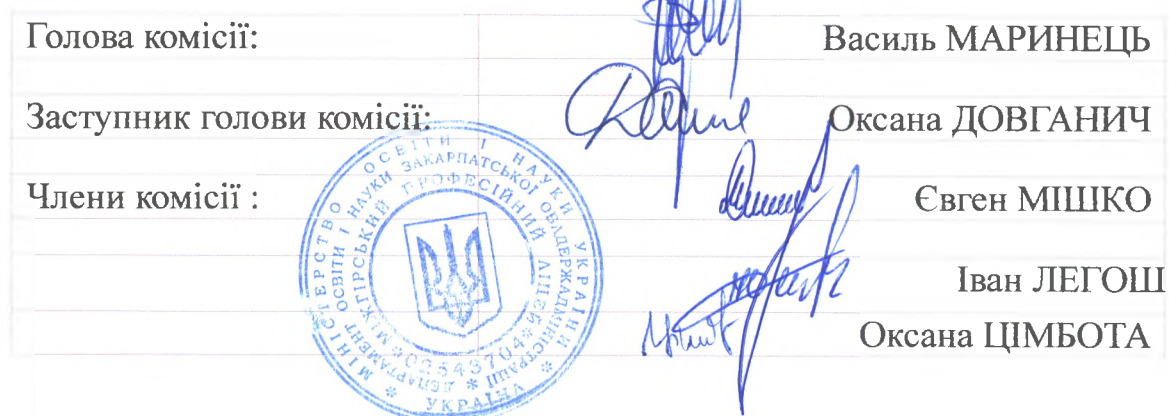 Голова комісії: Василь МАРИНЕЦЬ
Заступник голови комісії: Оксана ДОВГАНИЧ
Члени комісії : Євген МІШКО
Іван ЛЕГОШ
Оксана ЦІМБОТА
МІНІСТЕРСТВО ОСВІТИ І НАУКИ УКРАЇНИ
ДЕПАРТАМЕНТ ОСВІТИ І НАУКИ ЗАКАРПАТСЬКОЇ ОБЛДЕРЖАДМІНІСТРАЦІЇ
МІЖГІРСЬКИЙ ПРОФЕСІЙНИЙ ЛІЦЕЙ
*02543704*
* УКРАЇНА *